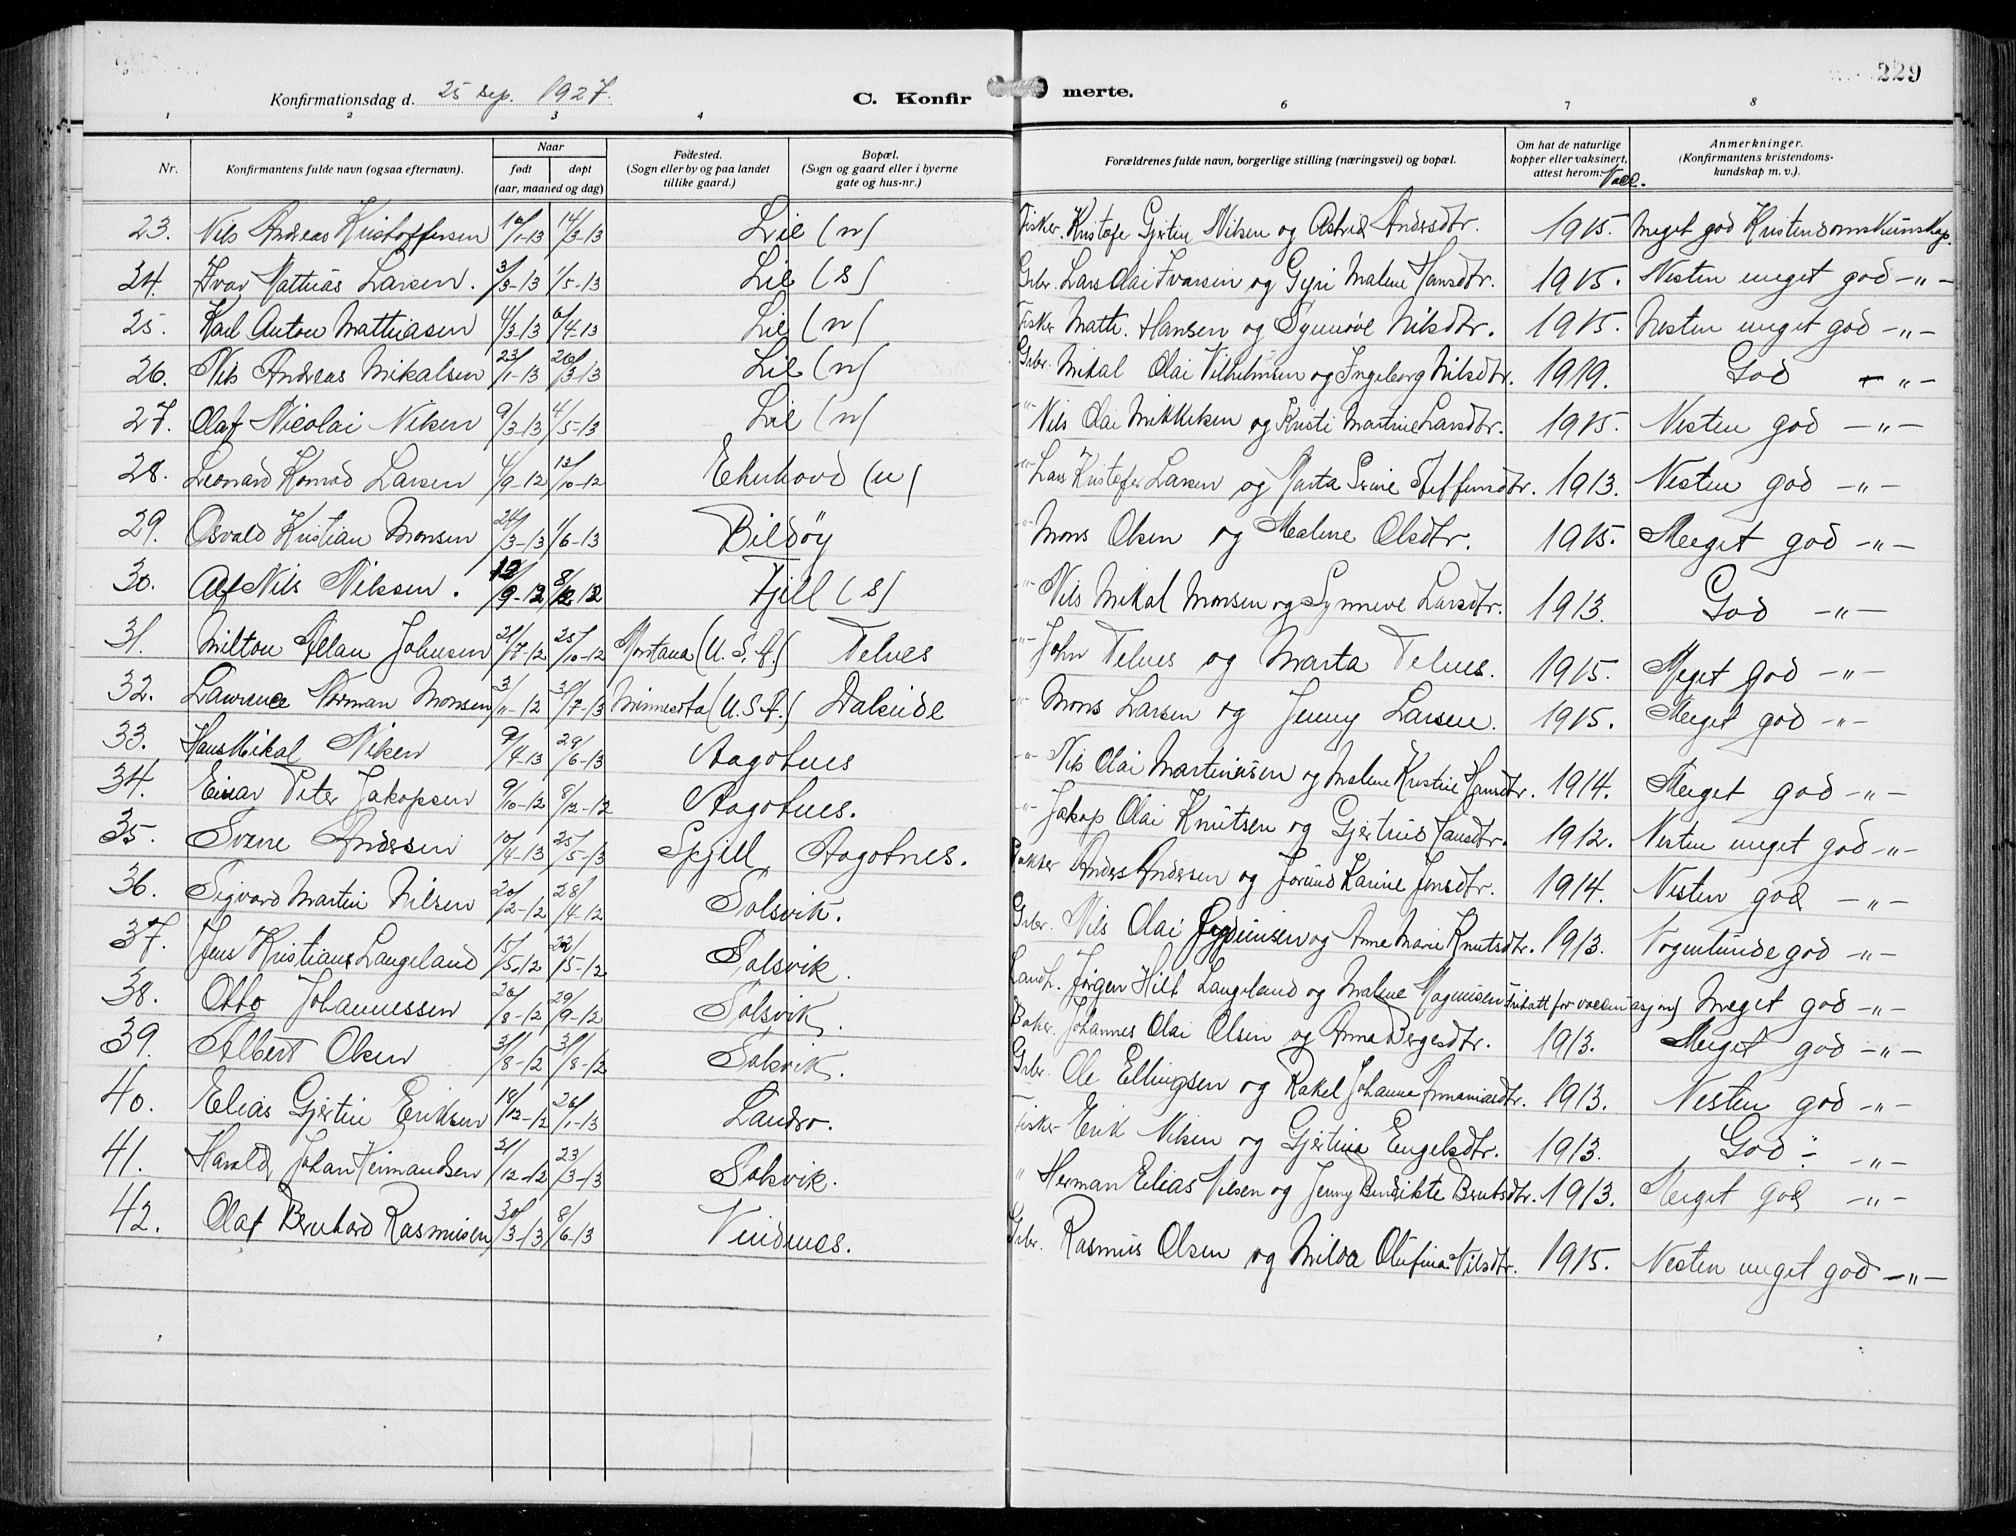 229
Konfirmationsdag d. 25 sep. 1927.
C. Konfirmerte.
1 2 3 4 6 7 8
Nr. Konfirmantens fulde navn (ogsaa efternavn). Naar født døpt (aar, maaned og dag) Fødested. (Sogn eller by og paa landet tillike gaard.) Bopæl. (Sogn og gaard eller i byerne gate og hus-nr.) Forældrenes fulde navn, borgerlige stilling (næringsvei) og bopæl. Om hat de naturlige kopper eller vaksinert, attest herom: Vacc. Anmerkninger. (Konfirmantens kristendomskundskap m. v.).
23. Nils Andreas Kristoffersen 10/1-13 14/3-13 Lie (n) Fisker. Kristofe Gjertin Nilsen og Astrid Andersdtr. 1915. Meget god Kristendomskunskap.
24. Ivar Mattias Larsen. 3/3-13 1/5-13 Lie (s) Grbr. Lars Olai Ivarsen og Gyri Malene Hansdtr. 1915. Nesten meget god -"-
25. Karl Anton Mathiasen 4/3-13 6/4-13 Lie (n) Fisker Math. Hansen og Synnøve Nilsdtr. 1915. Nesten meget god -"-
26. Nils Andreas Mikalsen 23/1-13 26/3-13 Lie (n) Grbr. Mikal Olai Vilhelmsen og Ingeborg Nilsdtr. 1919. God -"-
27. Olaf Nicolai Nilsen 9/3-13 4/5-13 Lie (n) -"- Nils Olai Mikkelsen og Kristi Martine Larsdtr. 1915. Nesten god -"-
28. Leonard Konrad Larsen 4/9-12 13/10-12 Ekerhovd (n) -"- Lars Kristofer Larsen og Marta Serine Steffensdtr. 1913. Nesten god -"-
29. Osvald Kristian Monsen 24/3-13 1/6-13 Bildøy -"- Mons Olsen og Malene Olsdtr. 1915. Meget god -"-
30. Alf Nils Nilssen. 12/9-12 8/12-12 Fjell (s) -"- Nils Mikal Monsen og Synneve Larsdtr. 1913. God -"-
31. Milton Allan Johnsen 21/7-12 25/10-12 Montana (U.S.A.) Telnes -"- John Telnes og Marta Telnes. 1915. Meget god -"-
32. Lawrence Norman Monsen 3/11-12 31/7-13 Minnesota (U.S.A.) Dalseide -"- Mons Larsen og Jenny Larsen. 1915. Meget god -"-
33. Hans Mikal Nilsen 9/4-13 29/6-13 Aagotnes -"- Nils Olai Martinusen og Malene Kristine Hansdtr. 1914. Meget god -"-
34. Einar Peter Jakopsen 9/10-12 8/12-12 Aagotnes. -"- Jakop Olai Knutsen og Gjertrud Hansdtr. 1912. Nesten meget god -"-
35. Sverre Andersen 10/4-13 25/5-13 Fjell Aagotnes. Bakker Anders Andersen og Jorund Karine Jensdtr. 1914. Nesten god -"-
36. Sigvard Martin Nilsen 20/2-12 28/4-12 Solsvik. Grbr. Nils Olai og Anne Marie Knutsdtr. 1913. Nogenlunde god -"-
37. Jens Kristians Langeland 15/5-12 22/5-12 Solsvik. Landh. Jørgen Hilt Langeland og Malene Magnusen Meget god -"-
38. Otto Johannessen 20/8-12 29/9-12 Solsvik. Baker. Johannes Olai Olsen og Anna Bergesdtr. 1913. Meget god -"-
39. Albert Olsen 3/8-12 31/8-12 Solsvik. Grbr. Ole Ellingsen og Rakel Johanne 1913. Nesten god -"-
40. Elias Gjertin Eriksen 18/12-12 26/1-13 Landro. Fisker Erik Nilsen og Gjertine Engelsdtr. 1913. God -"-
41. Harald Johan Heimandsen 21/12-12 23/3-13 Solsvik. " Herman Elias Nilsen og Jenny Bendikte Berntsdtr. 1913. Meget god -"-
42. Olaf Bernhard Rasmusen 30/3-13 8/6-13 Vindnes. Grbr. Rasmus Olsen og Milda Olufina Nilsdtr. 1915. Nesten meget god -"-